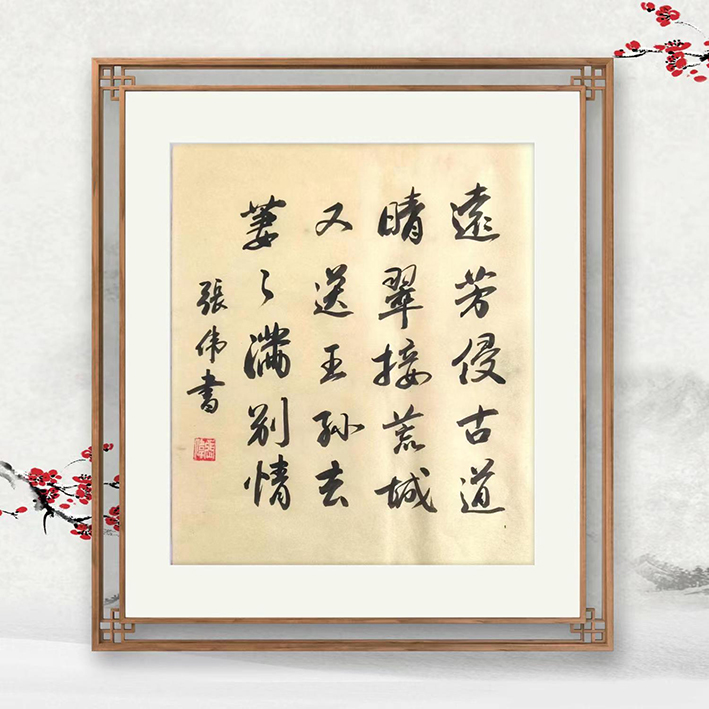 遠芳侵古道
晴翠接荒城
又送王孫去
萋〻滿別情
張伟書